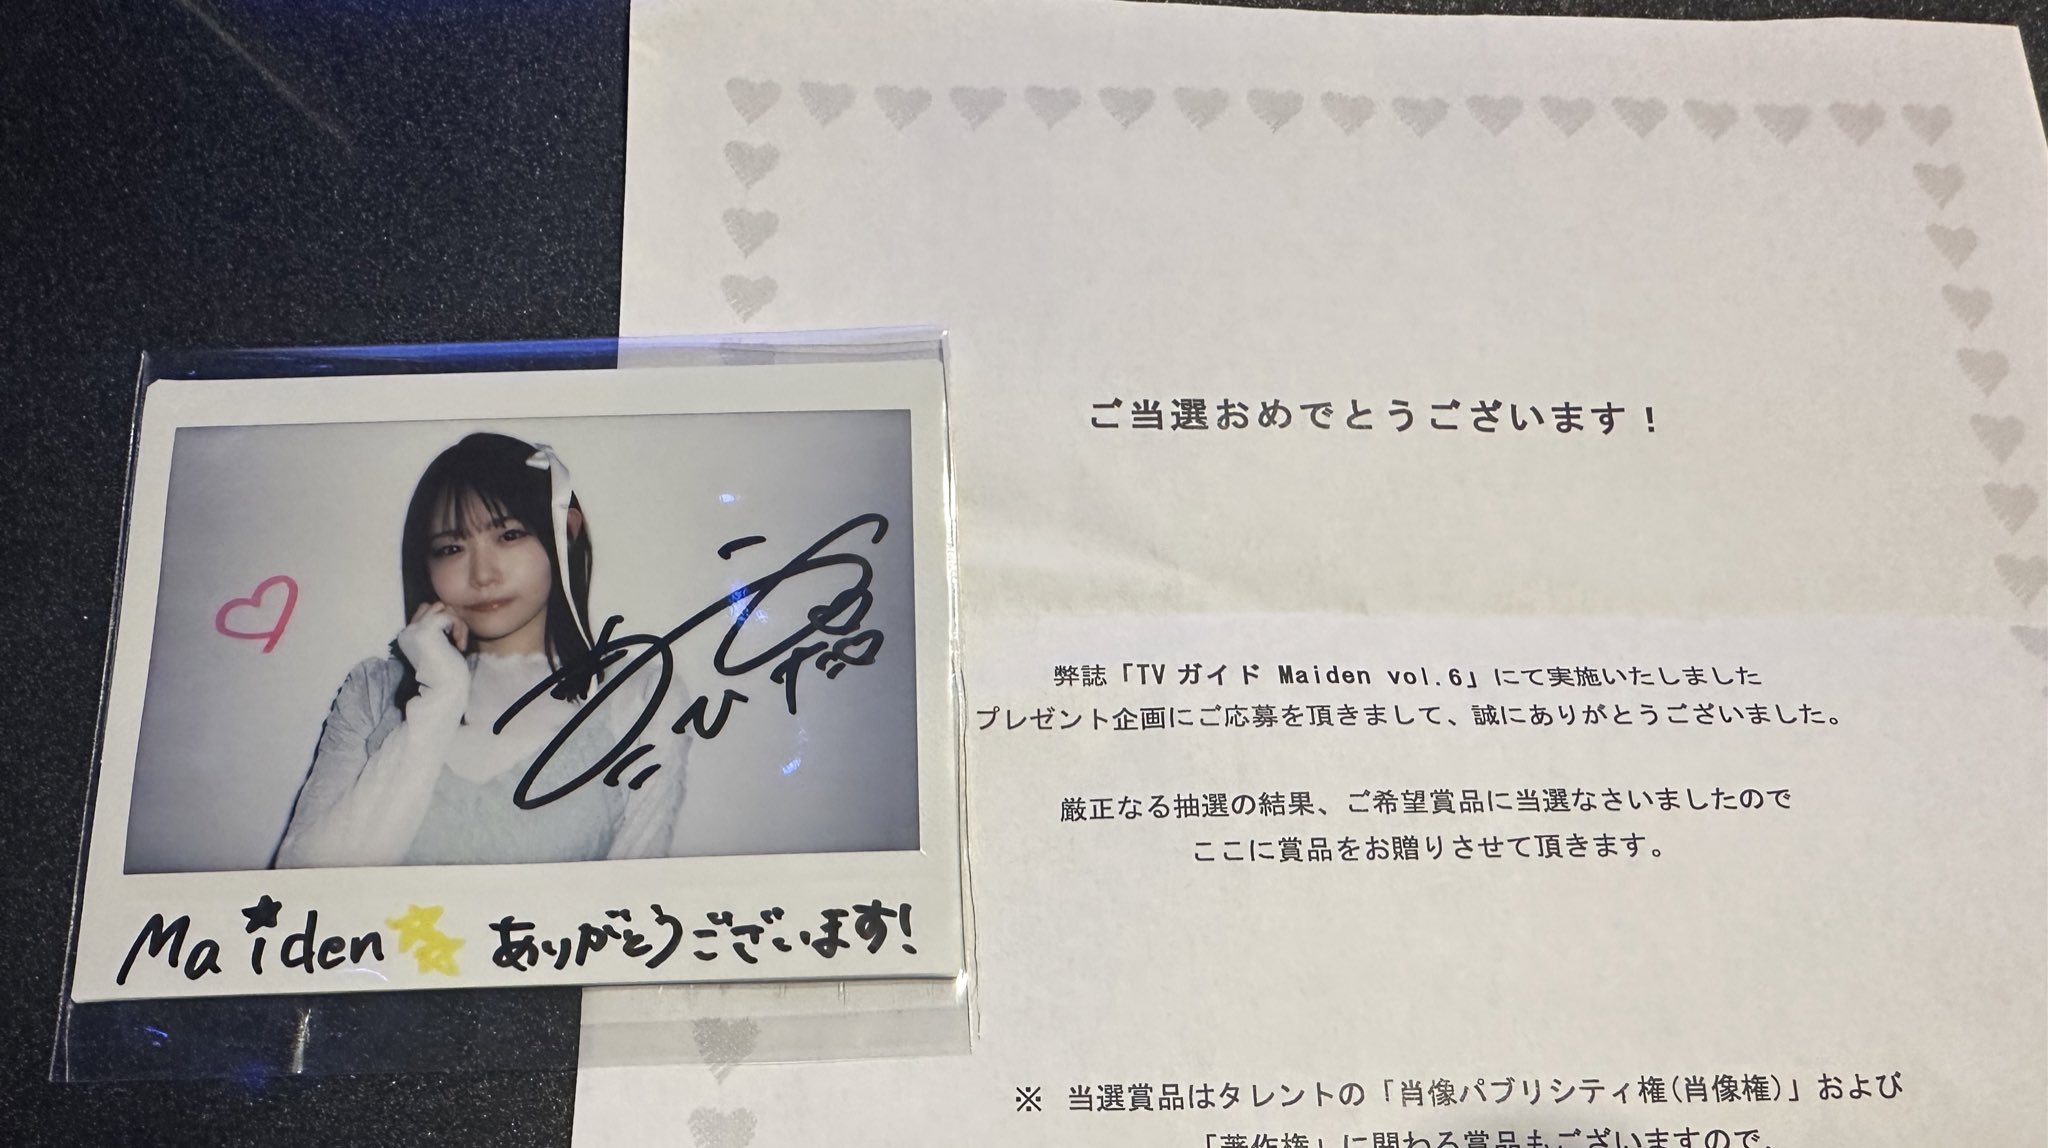 Maiden ありがとうございます!
ご当選おめでとうございます!
弊誌「TVガイド Maiden vol.6」にて実施いたしました
プレゼント企画にご応募を頂きまして、誠にありがとうございました。
厳正なる抽選の結果、ご希望賞品に当選なさいましたので
ここに賞品をお贈りさせて頂きます。
※ 当選賞品はタレントの「肖像パブリシティ権(肖像権)」および
「著作権」に関わる賞品もございますので、